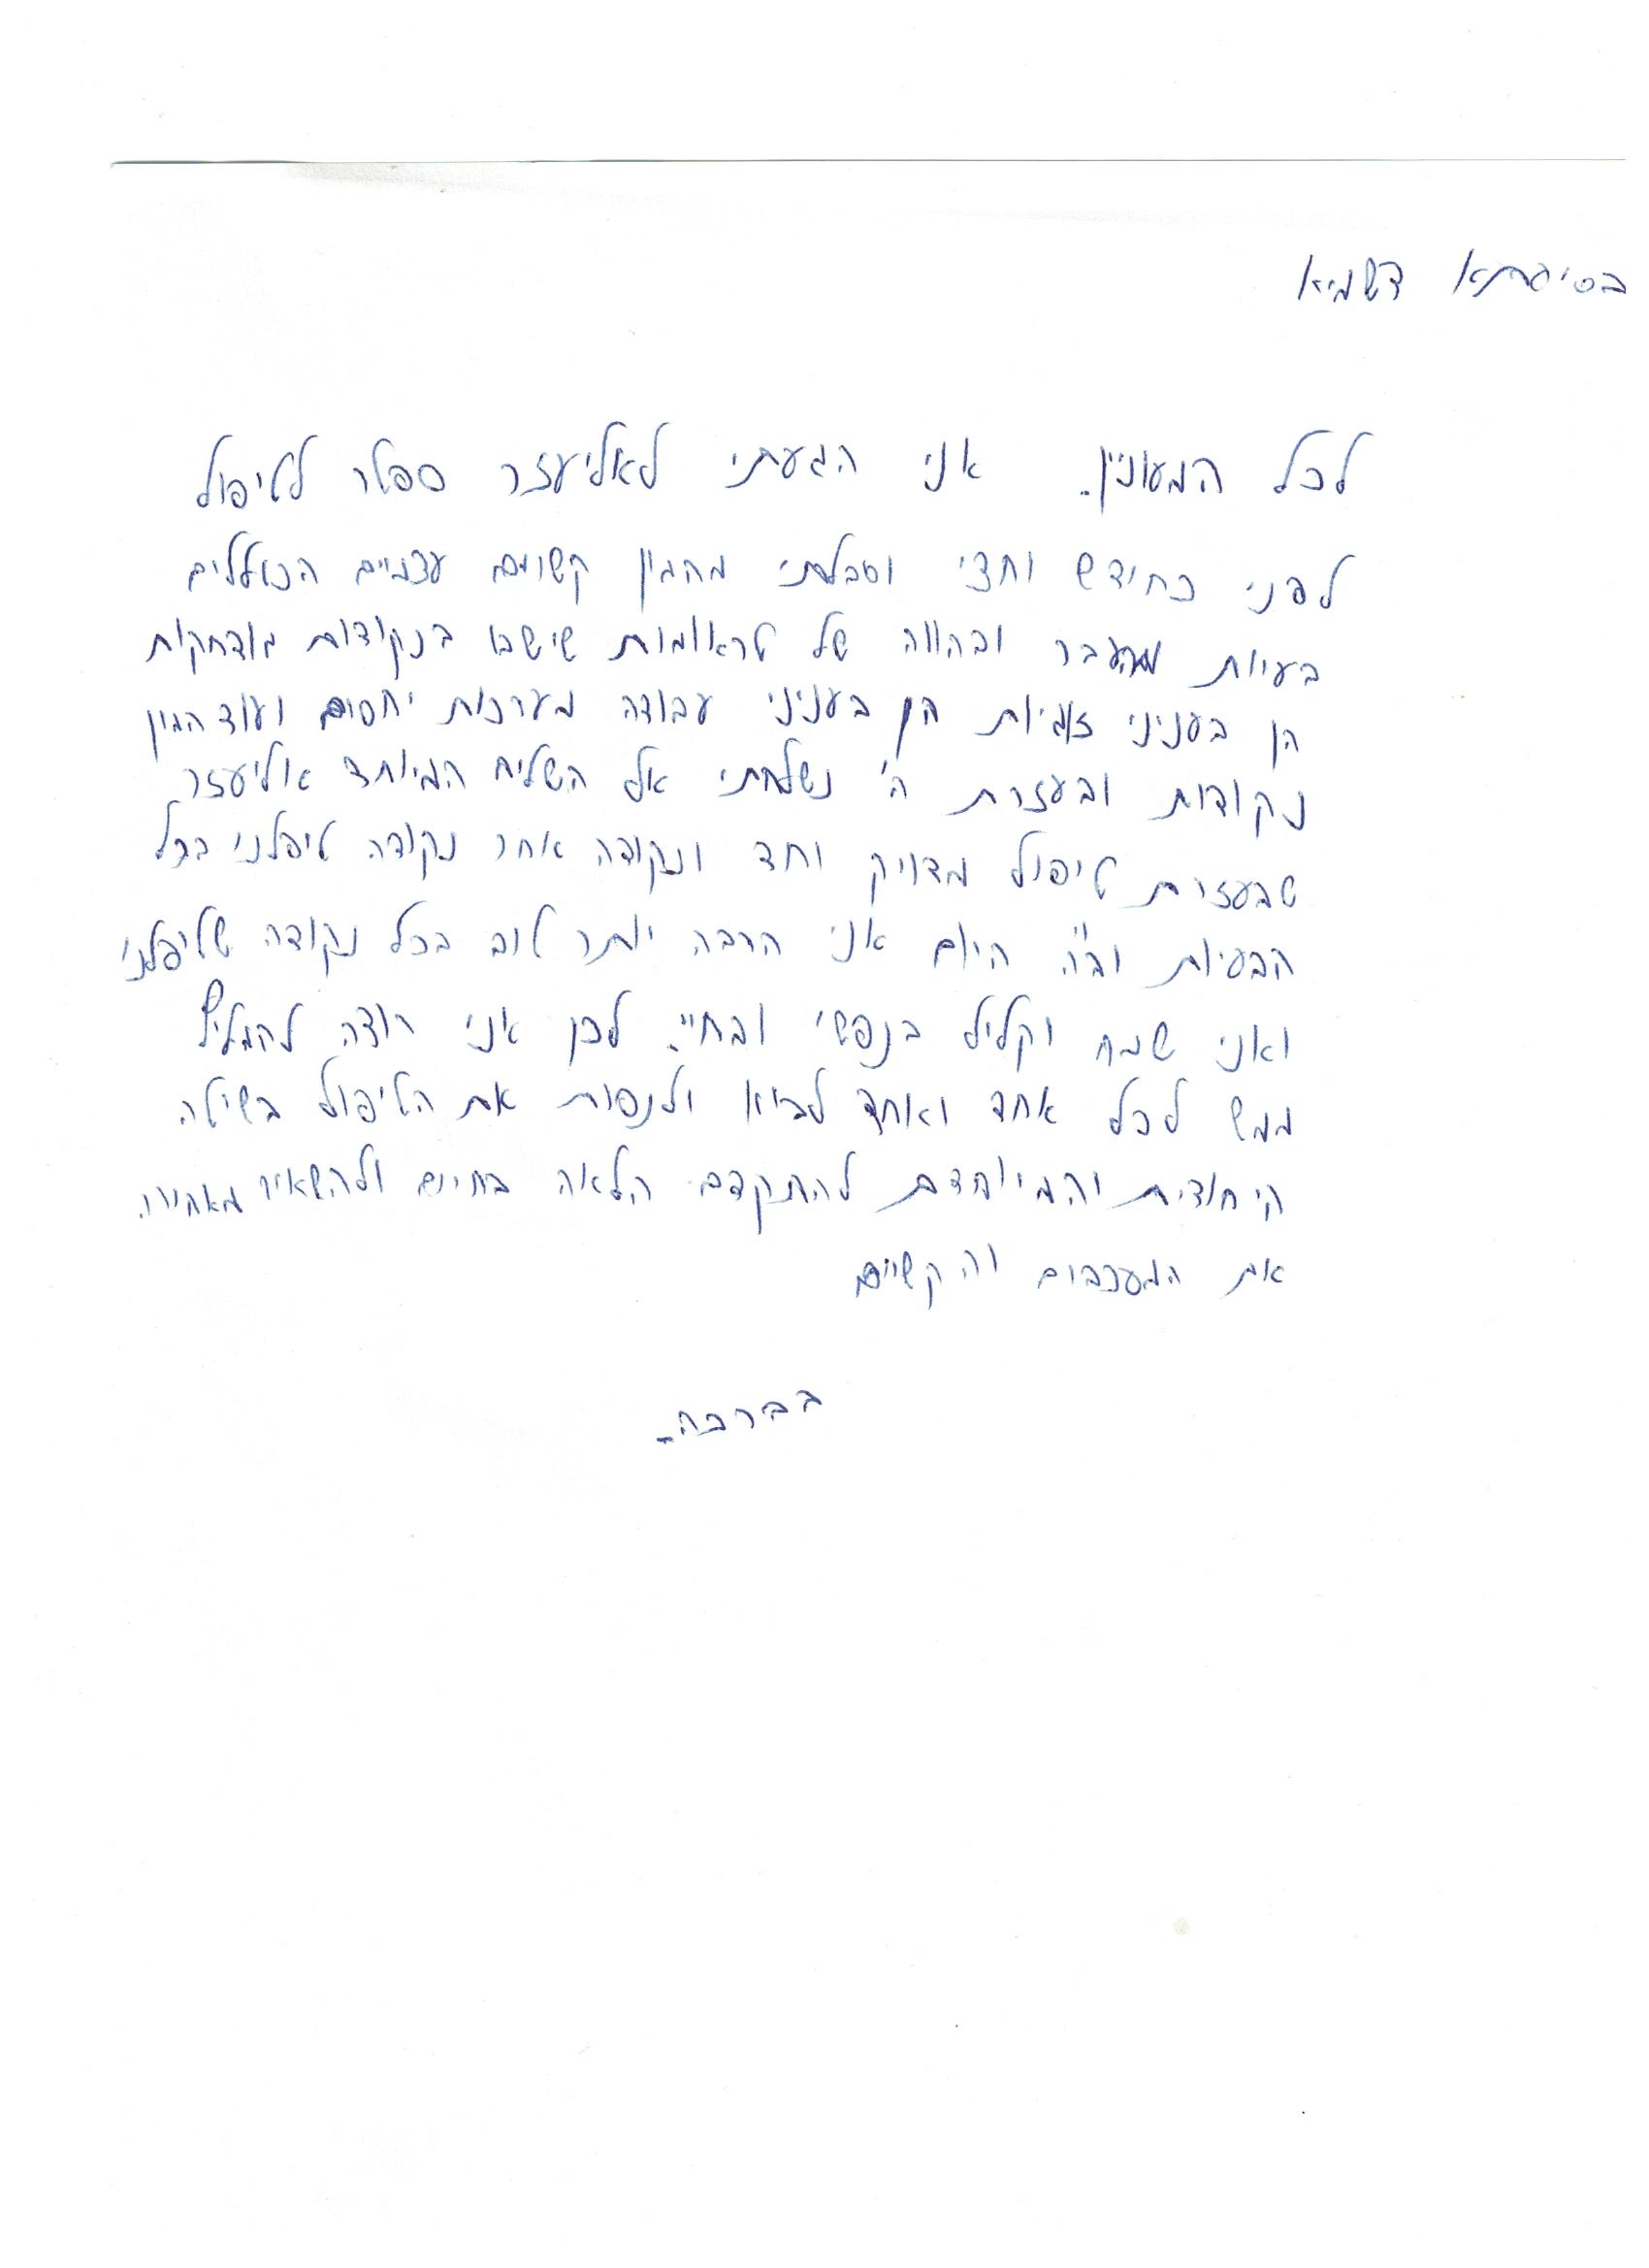 בסיגתא דשמיא
לכל המעוניין. אני הגעתי לאליעזר ספטר לטיפול
לפני כחידש וחצי וסבלתי מהמון קשוים עצמיים הכוללים
בעיות מהעבר ובהווה של טראומות שישבו בנקודות מודחקות
הן בעניני זוגיות הן בעניני עבודה מערכות יחסים ועוד המון
נקודות ובעזרת ה' נשלחתי אל השליח המיוחד אליעזר
שבעזרת טיפול מדויק וחד ונקודה אחר נקודה טיפלנו בכל
הבעיות וב"ה היום אני הרבה יותר טוב בכל נקודה שטיפלנו
ואני שמח וקליל בנפשי ובחיי. לכן אני רוצה להמליץ
ממש לכל אחד ואחד לבוא ולנסות את הטיפול בשיטה
היחודית והמיוחדת להתקדם הלאה בחיים ולהשאיר מאחורה
את המעכבים והקשיים
בברכה